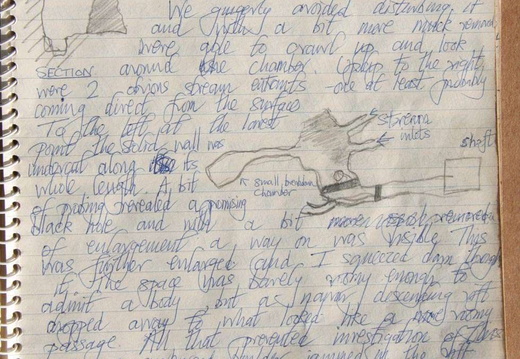 We gingerly avoided disturbing it
and with a bit more muck removed
were able to crawl up and look
SECTION
around the chamber. Up to the right
were 2 obvious stream entrants one at least probably
coming direct from the surface
To the left at the lowest
Stream
inlets
point the solid wall was
shaft
undercut along its
whole length. A bit
A small boulder
Chamber
of probing revealed a promising
black hole and with a bit more removed
of enlargement a way on was visible. This
was further enlarged and I squeezed down through
it, the space was barely roomy enough to
admit a body but a narrow descending rift
dropped away to what looked like a more roomy
passage. All that prevented investigation of
boulder jammed in the